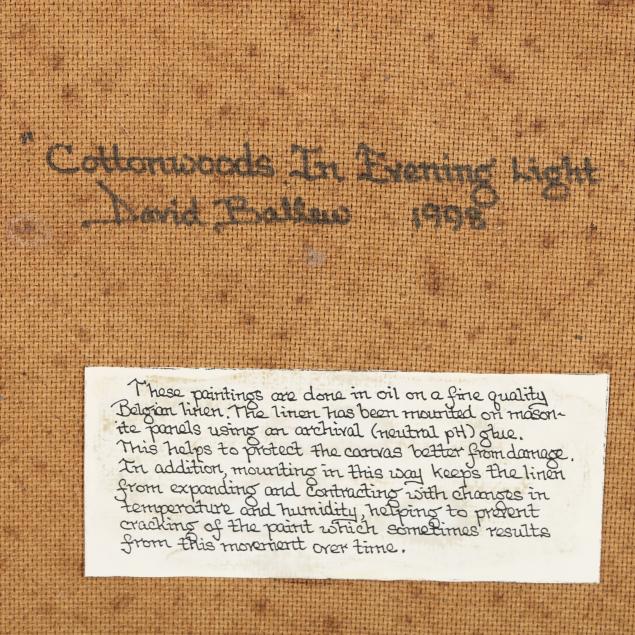 "Cottonwoods In Evening Light
David Ballew 1998
These paintings are done in oil on a fine quality
Belgian linen. The linen has been mounted on mason-
ite panels using an archival (neutral pH) glue.
This helps to protect the canvas better from damage.
In addition, mounting in this way keeps the linen
from expanding and contracting with changes in
temperature and humidity, helping to prevent
cracking of the paint which sometimes results
from this movement over time.